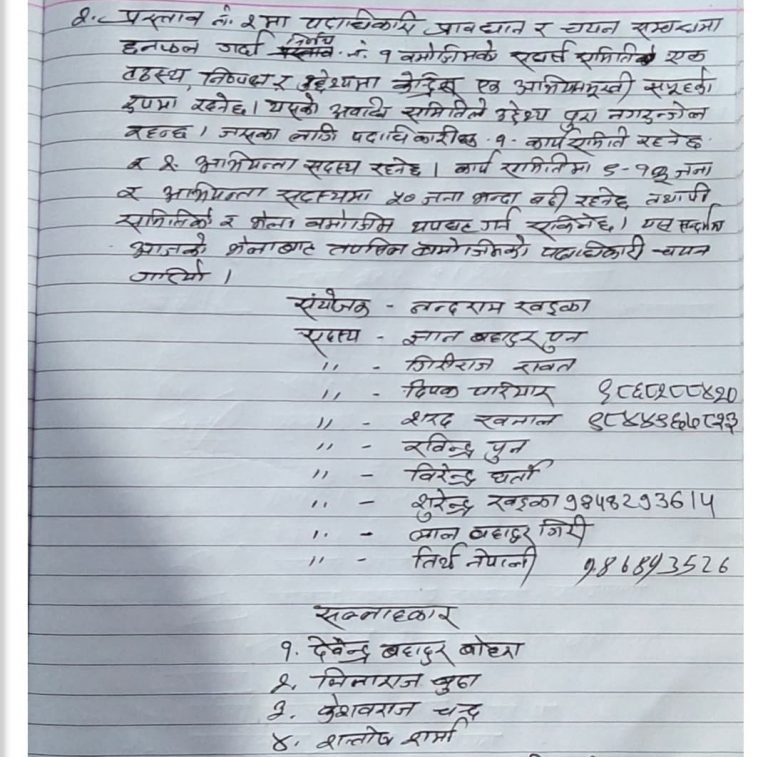 २. प्रस्ताव नं. २ मा पदाधिकारी प्रावधान र चयन सम्बन्धमा
छलफल गर्दा निर्णय नं. १ बमोजिमको संघर्ष समितिको एक
तटस्थ, निष्पक्ष र उद्देश्यमा केन्द्रित एक अभियानमुखी समूहको
रुपमा रहनेछ। यसको अवधि समितिले उद्देश्य पुरा नगरुन्जेल
रहनेछ। जसका लागि पदाधिकारीहरु १. कार्य समिति रहनेछ
र २. अभियन्ता सदस्य रहनेछ। कार्य समितिमा जना
र अभियन्ता सदस्यमा ५० जना भन्दा बढी रहनेछ तथापी
समितिको र भेला बमोजिम थपघट गर्न सकिनेछ। यस सन्दर्भमा
आजको भेलाबाट तपसिल बमोजिमको पदाधिकारी चयन
गरियो।
संयोजक - नन्दराम खड्का
सदस्य - ज्ञान बहादुर पुन
,, - गिरीराज रावत
,, - दिपक परियार
,, - शरद खनाल
,, - रविन्द्र पुन
,, - विरेन्द्र घर्ती
,, - शुरेन्द्र खड्का 9848293614
,, - बहादुर गिरी
,, - तिर्थ नेपाली 986893526
सल्लाहकार
१. देवेन्द्र बहादुर बोहरा
२. भिमराज बुढा
३. केशवराज चन्द
४. शन्तोष शर्मा